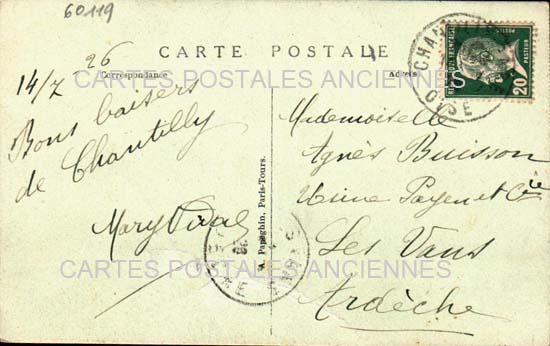 60119
CARTE POSTALE
Correspondance
Adresse
14/7 26
Bons baisers
de Chantilly
Mary
A. Papeghin, Paris-Tours.
Mademoiselle
Agnès Buisson
Usine Payen et Cie
Les Vans
Ardèche
CHANTILLY
OISE
REPUBLIQUE FRANÇAISE
POSTES
PASTEUR
20
CARTES POSTALES ANCIENNES
CARTES POSTALES ANCIENNES